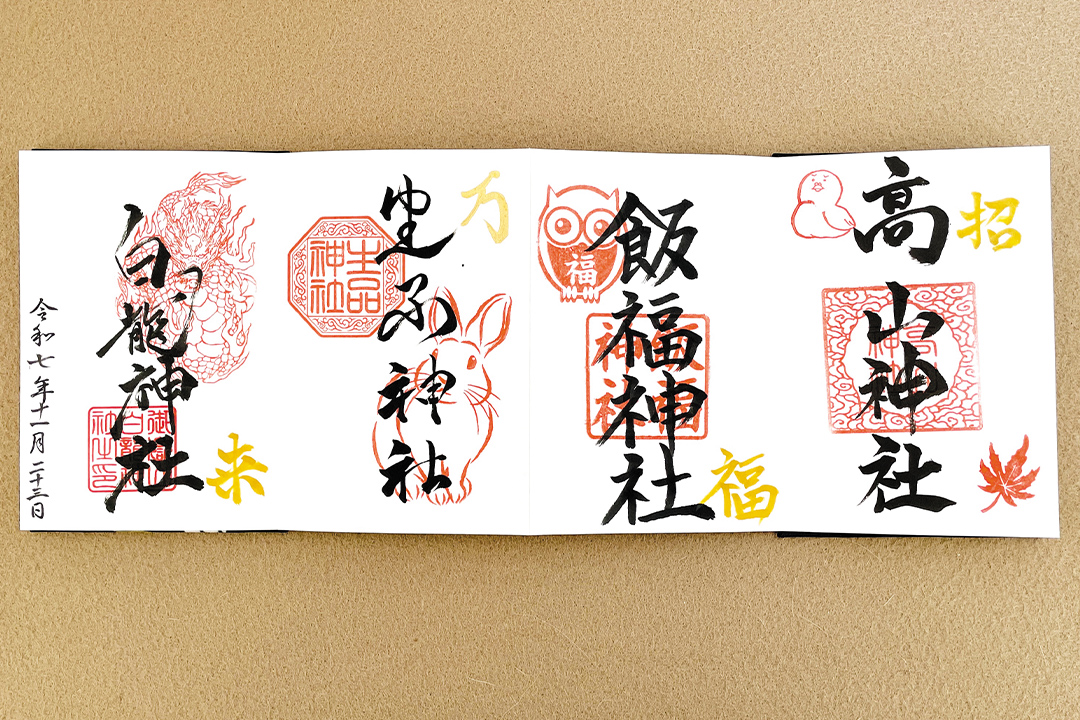 招
高山神社
福
飯福神社
福
万
生品神社
生品神社
白龍神社
来
令和七年十一月二十三日